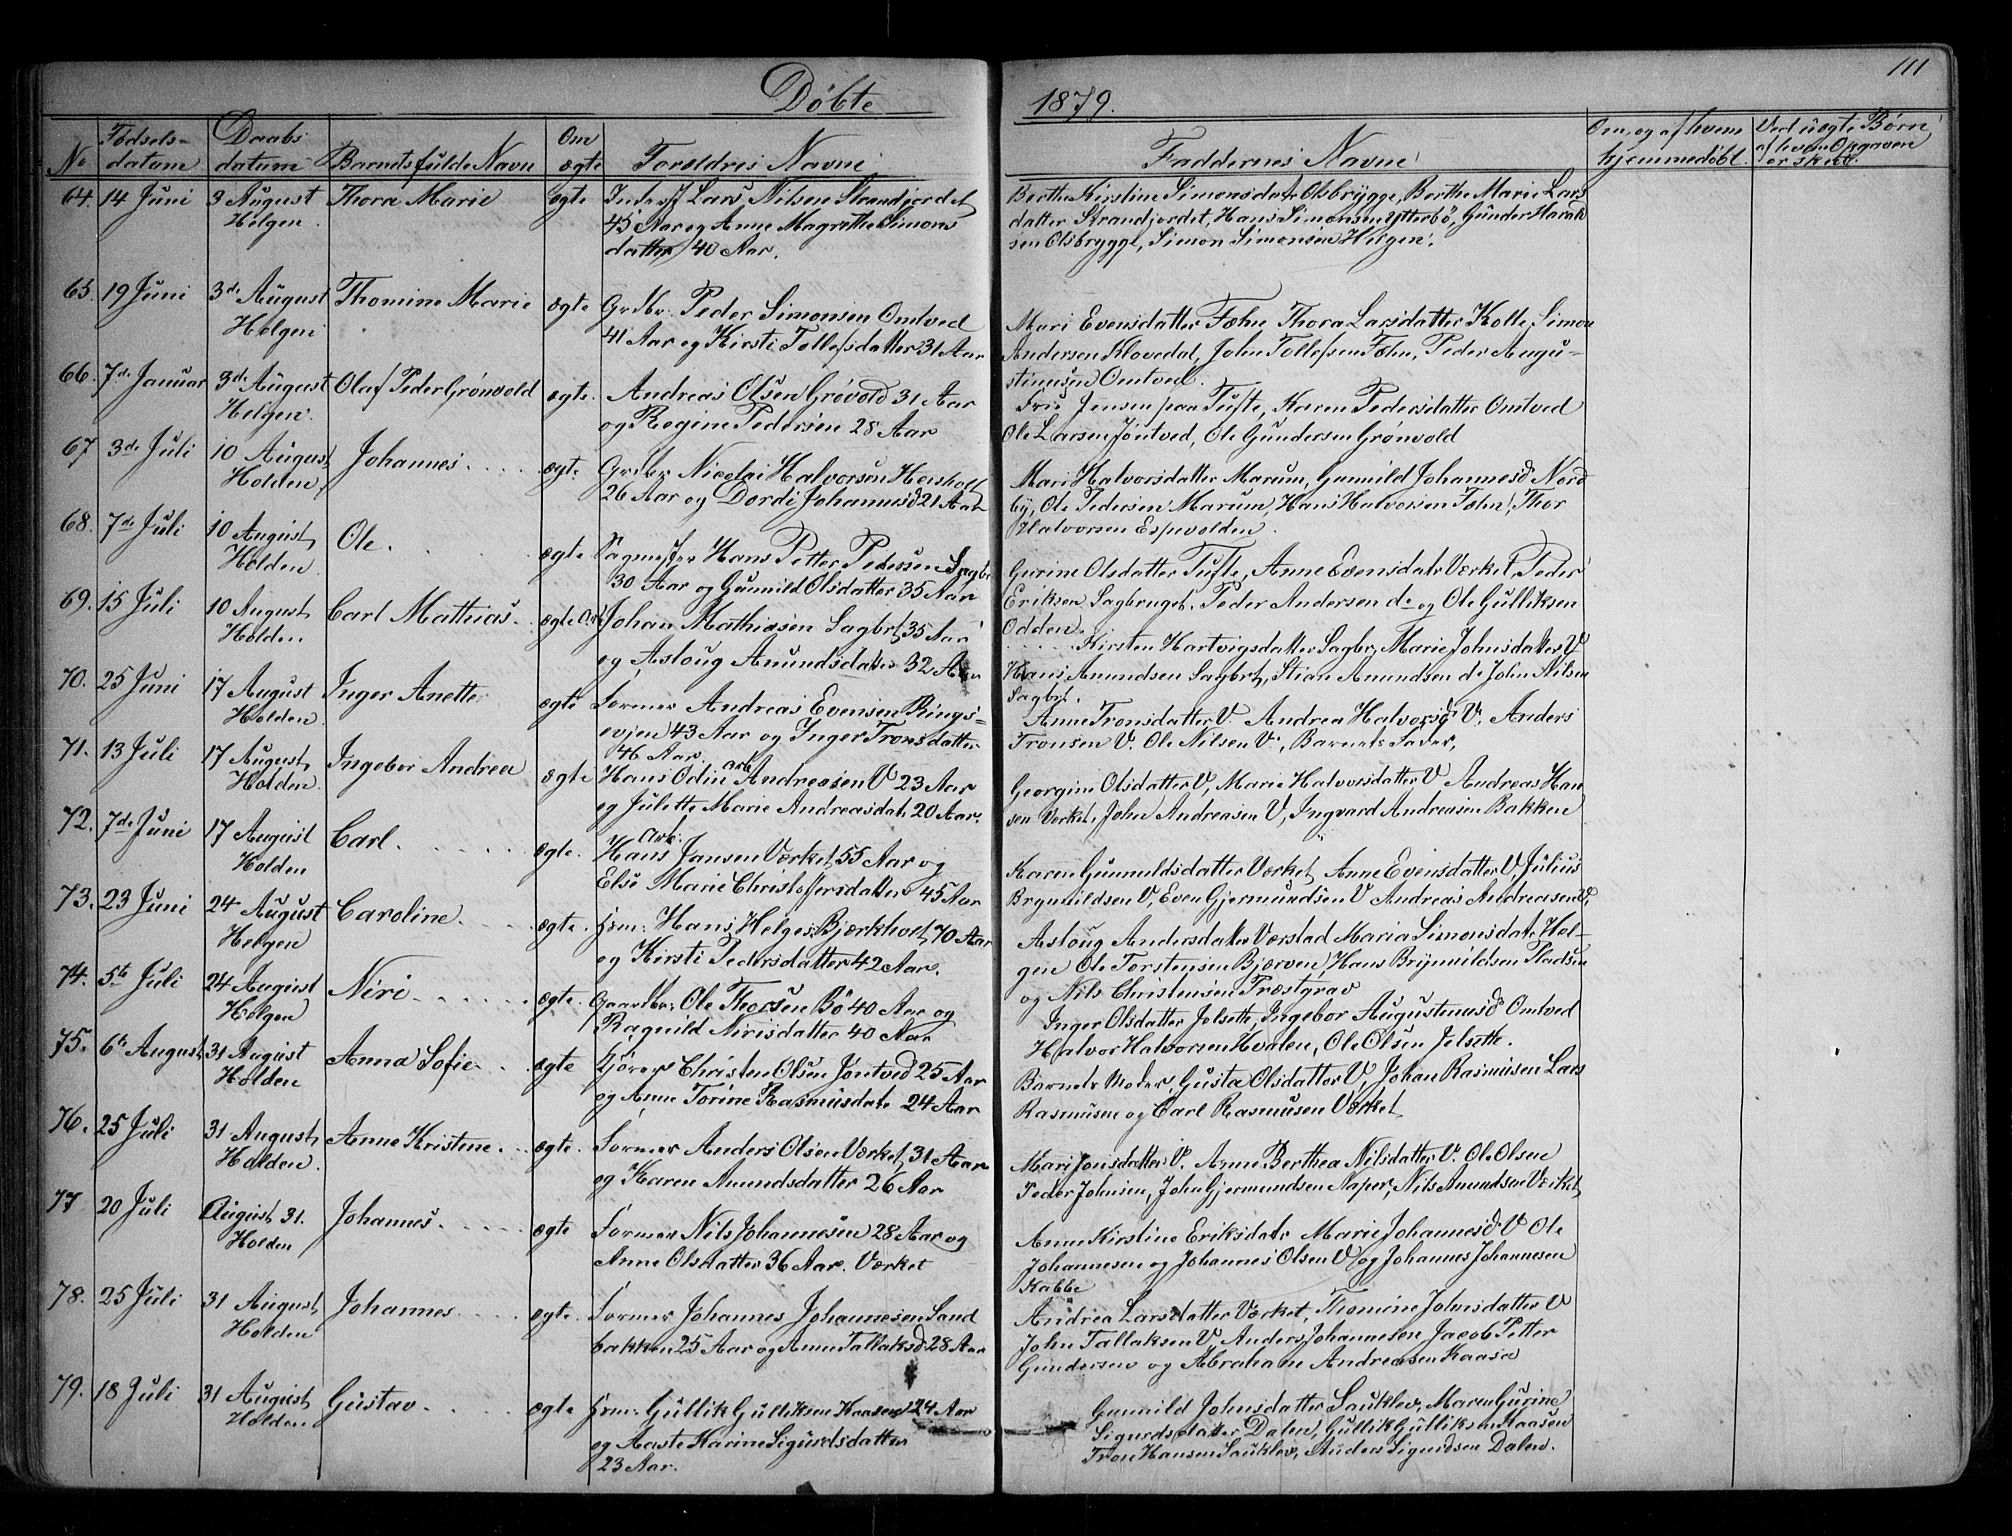 Døbte
1879.
111
No
Fødsels-
datum
Daabs
datum
Barnets fulde Navn
Om
ægte
Forældres Navne
Faddernes Navne
Om og af hvem
hjemmedøbt
Ved uægte Børn
af hvem Opgaven
er skeet.
64. 14 Juni 3 August Thora Marie ægte Lars Nilsen Strandjordet
Helgen. 45 Aar og Anne Magrethe Simons
datter 40 Aar.
Berthe Kirstine Simonsdatr Olsbrygge, Berthe Marie Lars
datter Strandjordet, Hans Simonsen Ytterbö, Gunder Harald
sen Olsbrygge, Simon Simonsen Helgen.
65. 19 Juni 3de August Thomine Marie ægte Grdbr. Peder Simonsen Omtved
Helgen 41 Aar og Kirsti Tollefsdatter 31 Aar
Mari Evensdatter Fæhn Thora Larsdatter Kolte, Simon
Andersen Klovedal, John Tollefsen Fæhn, Peder Augu-
stinusen Omtved.
66. 7de Januar 3de August Olaf Peder Grönvold ægte. Andreas Olsen Grøvold 31 Aar
Helgen. og Regine Pedersen 28 Aar
Frie Jensen paa Tufte, Karen Pedersdatter Omtved
Ole Larsen Jöntved, Ole Gundersen Grönvold
67 3de Juli 10 August Johannes. ægte Grdbr Nicolai Halvorsen Hersholt
Holden 26 Aar og Dordi Johannesd 21 Aar
Mari Halvorsdatter Marum, Gunnild Johannesd Nord
by, Ole Pedersen Marum, Hans Halvorsen Fæhn, Thor
Halvorsen Espevolden.
68. 7de Juli 10 August Ole. ægte Sagmester Hans Petter Pedersen Sagbr
Holden 30 Aar og Gunnild Olsdatter 35 Aar
Gurine Olsdatter Tufte, Anne Evensdatr Værket, Peder
Eriksen Sagbruget. Peder Andersen do og Ole Gulliksen
Odden.
69. 15 Juli 10 August Carl Mathias. ægte Arb Johan Mathiasen Sagbrt 35 Aar
Holden. og Asloug Amundsdatter 32 Aar
Kirsten Hartvigsdatter Sagbr, Marie Johnsdatter V
Hans Amundsen Sagbrt, Stian Amundsen do John Nilsen
Sagbrt.
70. 25 Juni 17 August Inger Anette ægte Former Andreas Evensen Rings=
Holden. evjen 43 Aar og Inger Tronsdatter
46 Aar
Anne Tronsdatter V. Andrea Halvorsd V. Anders
Tronsen V. Ole Nilsen V., Barnets Fader.
71. 13 Juli 17 August Ingebor Andrea ægte Hans Odin Arb Andreasen V 23 Aar
Holden. og Julette Marie Andreasdatr 20 Aar.
Georgine Olsdatter V, Marie Halvorsdatter V Andreas Han
sen Værket, John Andreasen V, Ingvard Andreasen Bakken
72. 7de Juni 17 August Carl. ægte. Arb. Hans Jansen Værket, 55 Aar og
Holden Else Marie Christoffersdatter 45 Aar
Karen Gunnuldsdatter Værket, Anne Evensdatter V, Julius
Brynnildsen V, Even Gjermundsen V Andreas Andreasen V,
73. 23 Juni 24 August Caroline. ægte. Hans Helges. Bjørkholt, 70 Aar
Helgen og Kirsti Pedersdatter 42 Aar.
Asloug Andersdatter Værstad Maria Simonsdatr Hol-
gen Ole Torstensen Bjærven, Hans Brynnildsen Pladsen
og Nils Christensen Præstgrav
74. 5te Juli 24 August Niri. ægte. Gaardbr. Ole Thorsen Bö 40 Aar og
Helgen Ragnild Nirisdatter 40 Aar
Inger Olsdatter Jelsette, Ingebor Augustinusd Omtved
Halvor Halvorsen Hvalen, Ole Olsen Jelsette.
75. 6te August 31 August Anna Sofie. ægte Christen Olsen Jöntved 25 Aar
Holden og Anne Torine Rasmusdatr 24 Aar
Barnets Moder, Gusta Olsdatter V, Johan Rasmusen Lars
Rasmusen og Carl Rasmusen Værket
76. 25 Juli 31 August Anne Kristine. ægte. Former Anders Olsen Værket, 31 Aar
Holden. og Karen Amundsdatter 26 Aar
Mari Jonsdatter V. Anne Berthea Nilsdatter V. Ole Olsen
Peder Johnsen, John Gjermundsen Naper, Nils Amundsen Værket
77 20 Juli August 31. Johannes. ægte Former Nils Johannesen 28 Aar og
Holden Anne Olsdatter 36 Aar. Værket
Anne Kirstine Eriksdatr Marie Johannesd V Ole
Johannesen og Johannes Olsen V og Johannes Johannesen
Kabbe
78. 25 Juli 31 August Johannes ægte. Former Johannes Johannesen Sand
Holden bakken 25 Aar og Anne Tallaksd 28 Aar
Andrea Larsdatter Værket, Thomine Johnsdatter V
John Tallaksen V. Anders Johannesen Jacob Petter
Gundersen og Abraham Andreasen Kaasa
79. 18 Juli 31 August Gustav. ægte Gullik Gulliksen Kaasen 24 Aar
Holden og Aaste Karine Sigurdsdatter
23 Aar.
Gunnild Johnsdatter Sauklev, Maren Gurine
Sigurdsdatter Dalen, Gullik Gulliksen Kaasen
Tron Hansen Sauklev, Anders Sigurdsen Dalen.